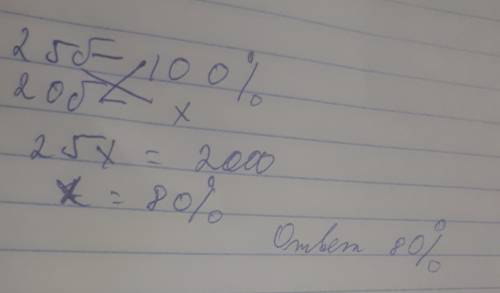 25б – 100%
20б – x
25x = 2000
x = 80%
Ответ 80%